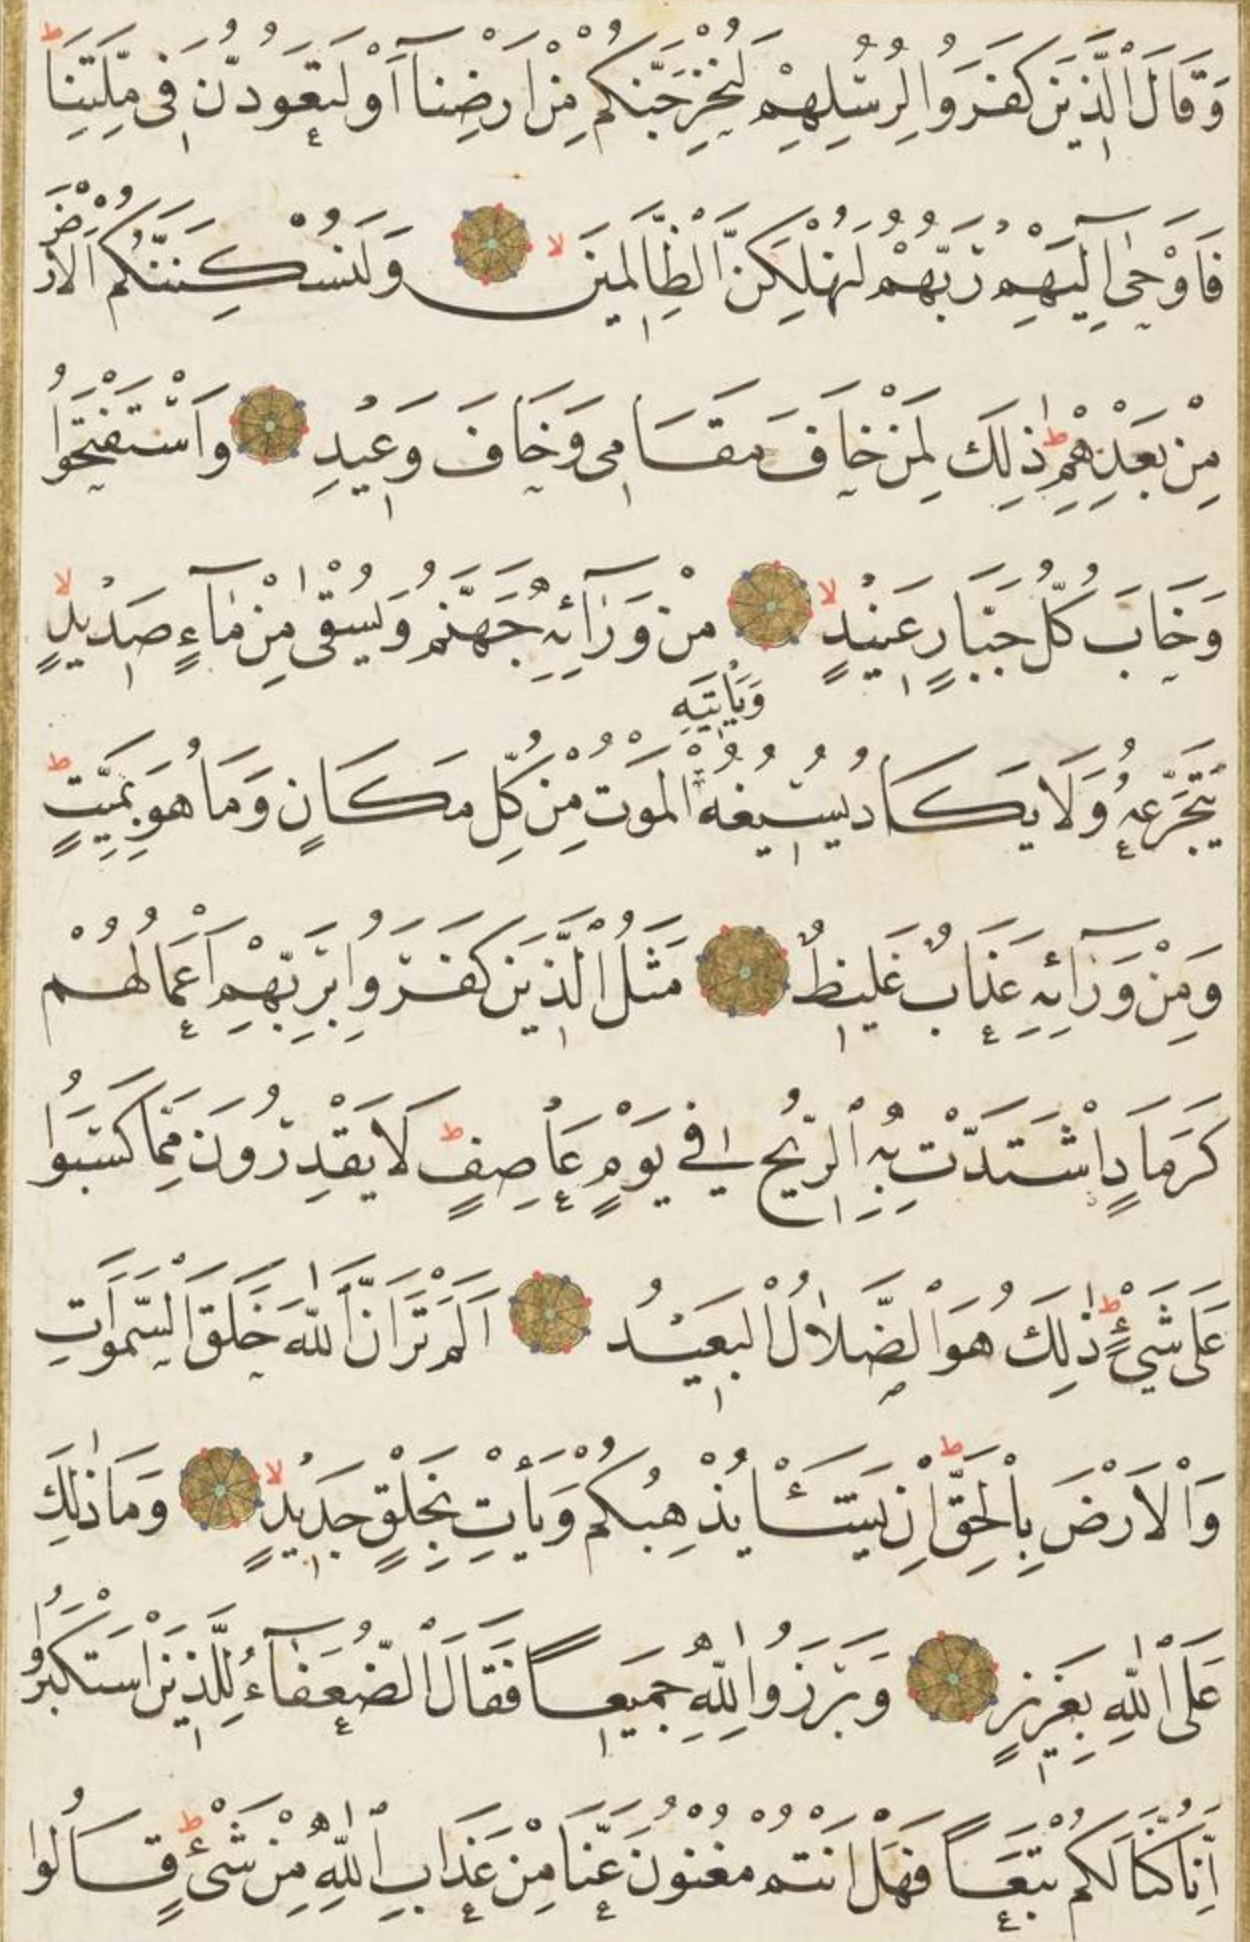 وَقَالَ الَّذِينَ كَفَرُوا لِرُسُلِهِمْ لَنُخْرِجَنَّكُمْ مِنْ أَرْضِنَا أَوْ لَتَعُودُنَّ فِي مِلَّتِنَا ط
فَأَوْحٰى إِلَيْهِمْ رَبُّهُمْ لَنُهْلِكَنَّ الظَّالِمِينَ لا وَلَنُسْكِنَنَّكُمُ الْأَرْضَ
مِنْ بَعْدِهِمْ ط ذٰلِكَ لِمَنْ خَافَ مَقَامِي وَخَافَ وَعِيدِ وَاسْتَفْتَحُوا
وَخَابَ كُلُّ جَبَّارٍ عَنِيدٍ لا مِنْ وَرَآئِهِ جَهَنَّمُ وَيُسْقٰى مِنْ مَآءٍ صَدِيدٍ لا
وَيَأْتِيهِ
يَتَجَرَّعُهُ وَلَا يَكَادُ يُسِيغُهُ الْمَوْتُ مِنْ كُلِّ مَكَانٍ وَمَا هُوَ بِمَيِّتٍ ط
وَمِنْ وَرَآئِهِ عَذَابٌ غَلِيظٌ مَثَلُ الَّذِينَ كَفَرُوا بِرَبِّهِمْ أَعْمَالُهُمْ
كَرَمَادٍ اشْتَدَّتْ بِهِ الرِّيحُ فِي يَوْمٍ عَاصِفٍ ط لَا يَقْدِرُونَ مِمَّا كَسَبُوا
عَلٰى شَيْءٍ ط ذٰلِكَ هُوَ الضَّلَالُ الْبَعِيدُ أَلَمْ تَرَ أَنَّ اللّٰهَ خَلَقَ السَّمٰوَاتِ
وَالْأَرْضَ بِالْحَقِّ ط إِنْ يَشَأْ يُذْهِبْكُمْ وَيَأْتِ بِخَلْقٍ جَدِيدٍ لا وَمَا ذٰلِكَ
عَلَى اللّٰهِ بِعَزِيزٍ وَبَرَزُوا لِلّٰهِ جَمِيعًا فَقَالَ الضُّعَفَآءُ لِلَّذِينَ اسْتَكْبَرُوا
إِنَّا كُنَّا لَكُمْ تَبَعًا فَهَلْ أَنْتُمْ مُغْنُونَ عَنَّا مِنْ عَذَابِ اللّٰهِ مِنْ شَيْءٍ ط قَالُوا